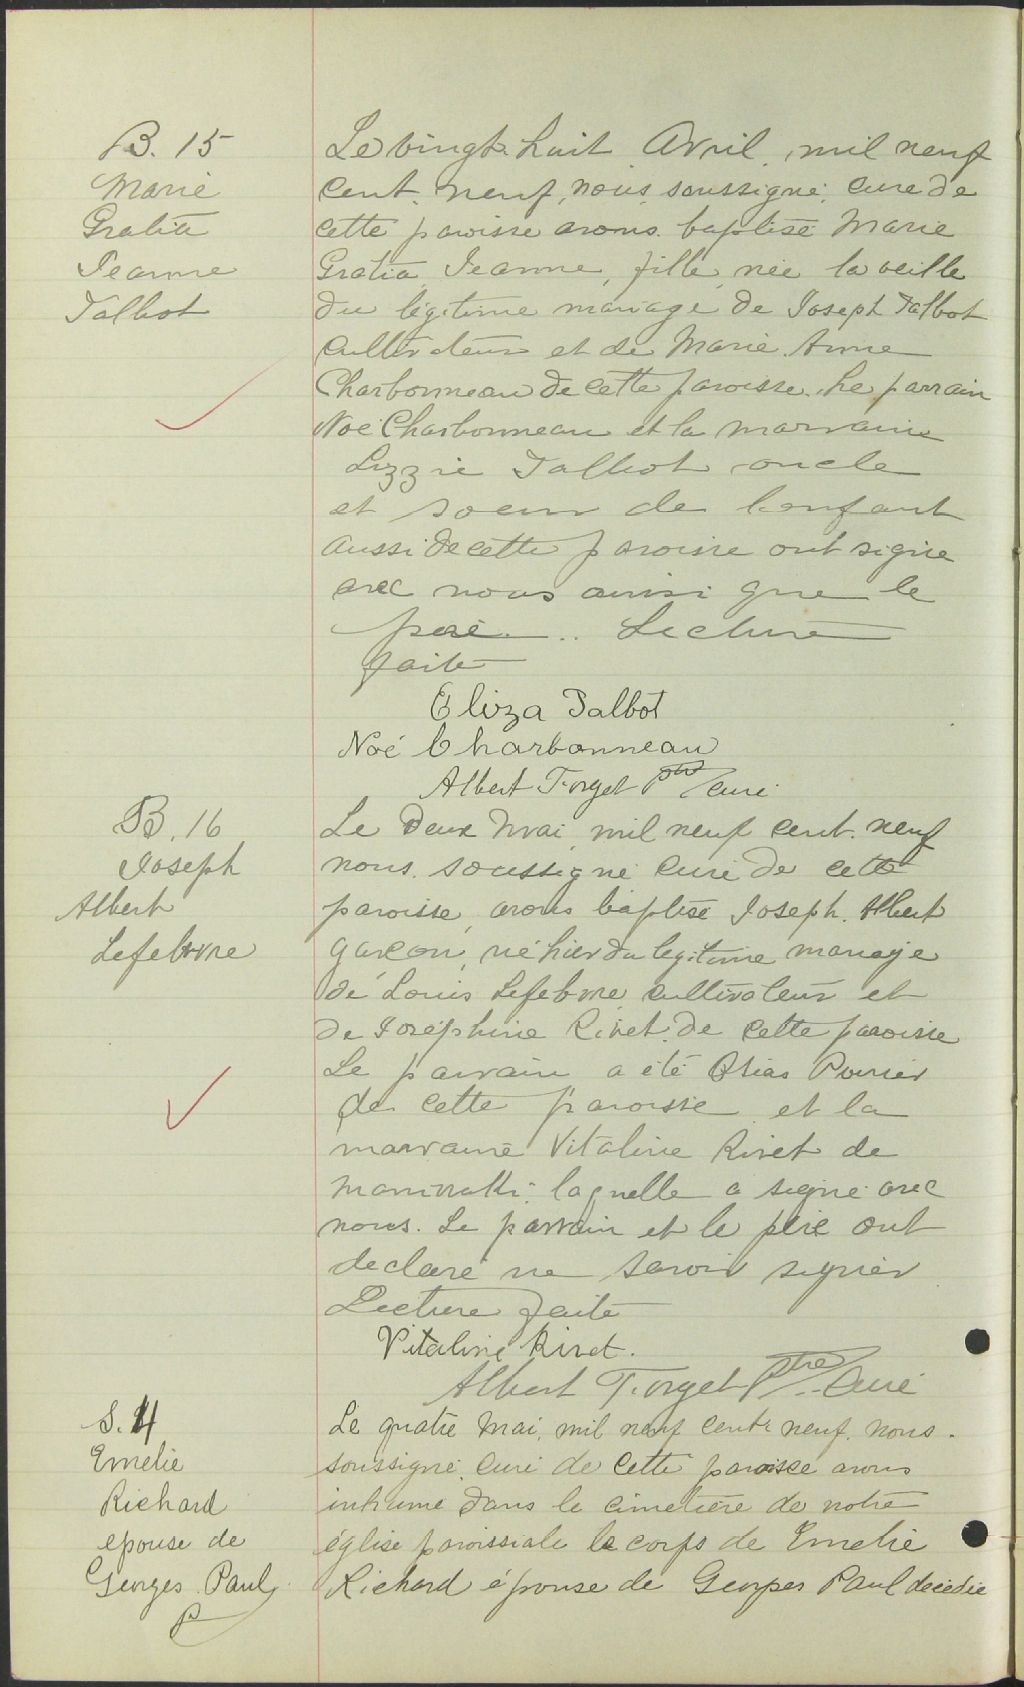 B. 15
Marie
Gratia
Jeanne
Talbot
Le vingt-huit Avril, mil neuf
cent neuf, nous soussigné, curé de
cette paroisse avons baptisé Marie
Gratia Jeanne, fille, née la veille
du légitime mariage de Joseph Talbot
cultivateur et de Marie Anne
Charbonneau de cette paroisse. Le parrain
Noé Charbonneau et la marraine
Lizzie Talbot oncle
et soeur de l'enfant
aussi de cette paroisse ont signé
avec nous ainsi que le
père... Lecture
faite
Eliza Talbot
Noé Charbonneau
Albert Forget ptre curé
B. 16
Joseph
Albert
Lefebvre
Le deux Mai mil neuf cent neuf
nous soussigné curé de cette
paroisse, avons baptisé Joseph Albert
garçon, né hier du légitime mariage
de Louis Lefebvre cultivateur et
de Joséphine Rivet de cette paroisse
Le parrain a été Poirier
de cette paroisse et la
marraine Vitaline Rivet de
Maniwaki, laquelle a signé avec
nous. Le parrain et le père ont
déclaré ne savoir signer
Lecture faite
Vitaline Rivet.
Albert Forget ptre curé
S. 4
Emelie
Richard
epouse de
Georges Paul
Le quatre Mai, mil neuf cent neuf, nous
soussigné, curé de cette paroisse avons
inhumé dans le cimetière de notre
église paroissiale le corps de Emelie
Richard épouse de Georges Paul décédée